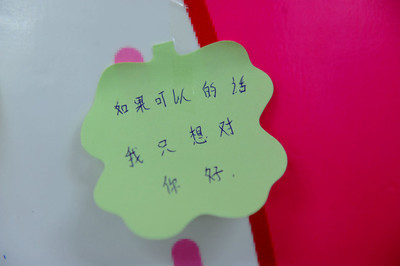 如果可以的话
我只想对
你好.